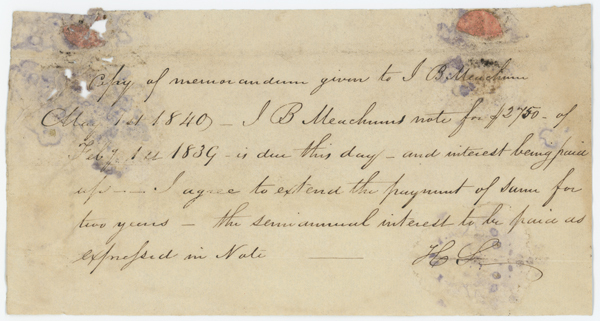 Copy of memorandum given to I B Meachum
1st 1840 — I B Meachums note for $2750 — of
Feby 1st 1839 — is due this day — and interest being paid
up — — I agree to extend the payment of same for
two years — the semiannual interest to be paid as
expressed in Note —— H S